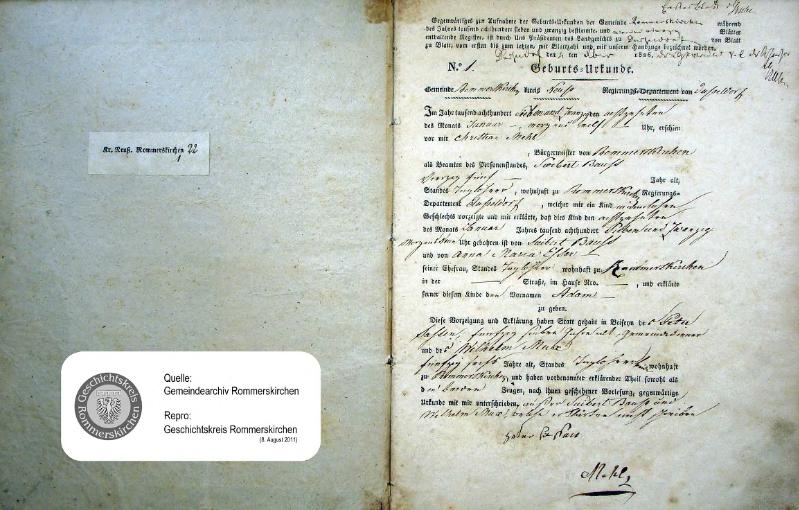 Kr. Neuß. Rommerskirchen 22
1
Quelle:
Gemeindearchiv Rommerskirchen
Repro:
Geschichtskreis Rommerskirchen
(8. August 2011)
Geschichtskreis
Rommerskirchen
Gegenwärtiges zur Aufnahme der Geburts-Urkunden der Gemeinde Rommerskirchen während
des Jahres tausend achthundert sieben und zwanzig bestimmte, und Blätter
enthaltende Register, ist durch Uns Präsidenten des Landgerichts zu Düsseldorf von Blatt
zu Blatt, vom ersten bis zum letzten, mit Blattzahl und mit unserm Handzuge bezeichnet worden.
Düsseldorf den 1826.
No. 1. Geburts-Urkunde.
Gemeinde Rommerskirchen Kreis Neuss Regierungs-Departement von Düsseldorf
Im Jahr tausend achthundert sieben und zwanzig den
des Monats Januar morgens Uhr, erschien
vor mir Christian Mehl
, Bürgermeister von Rommerskirchen
als Beamten des Personenstandes, Seibert Bauss
vierzig fünf Jahr alt,
Standes Taglöhner, wohnhaft zu Rommerskirchen Regierungs-
Departement Düsseldorf, welcher mir ein Kind männlichen
Geschlechts vorzeigte und mir erklärte, daß dies Kind den
des Monats Januar Jahres tausend achthundert sieben und zwanzig
Uhr gebohren ist von Seibert Bauss
und von Anna Maria Esser
seiner Ehefrau, Standes Taglöhner wohnhaft zu Rommerskirchen
in der Straße, im Hause Nro. , und erklärte
ferner diesem Kinde den Vornamen Adam
zu geben.
Diese Vorzeigung und Erklärung haben Statt gehabt in Beiseyn des Peter
fünfzig sieben Jahre alt, Gemeindediener
und des Wilhelm
fünfzig sechs Jahre alt, Standes Taglöhner wohnhaft
zu Rommerskirchen, und haben vorbenannter erklärender Theil sowohl als
den beiden Zeugen, nach ihnen geschehener Vorlesung, gegenwärtige
Urkunde mit mir unterschrieben, außer Seibert Bauss und
Wilhelm welche erklärten nicht schreiben
Mehl